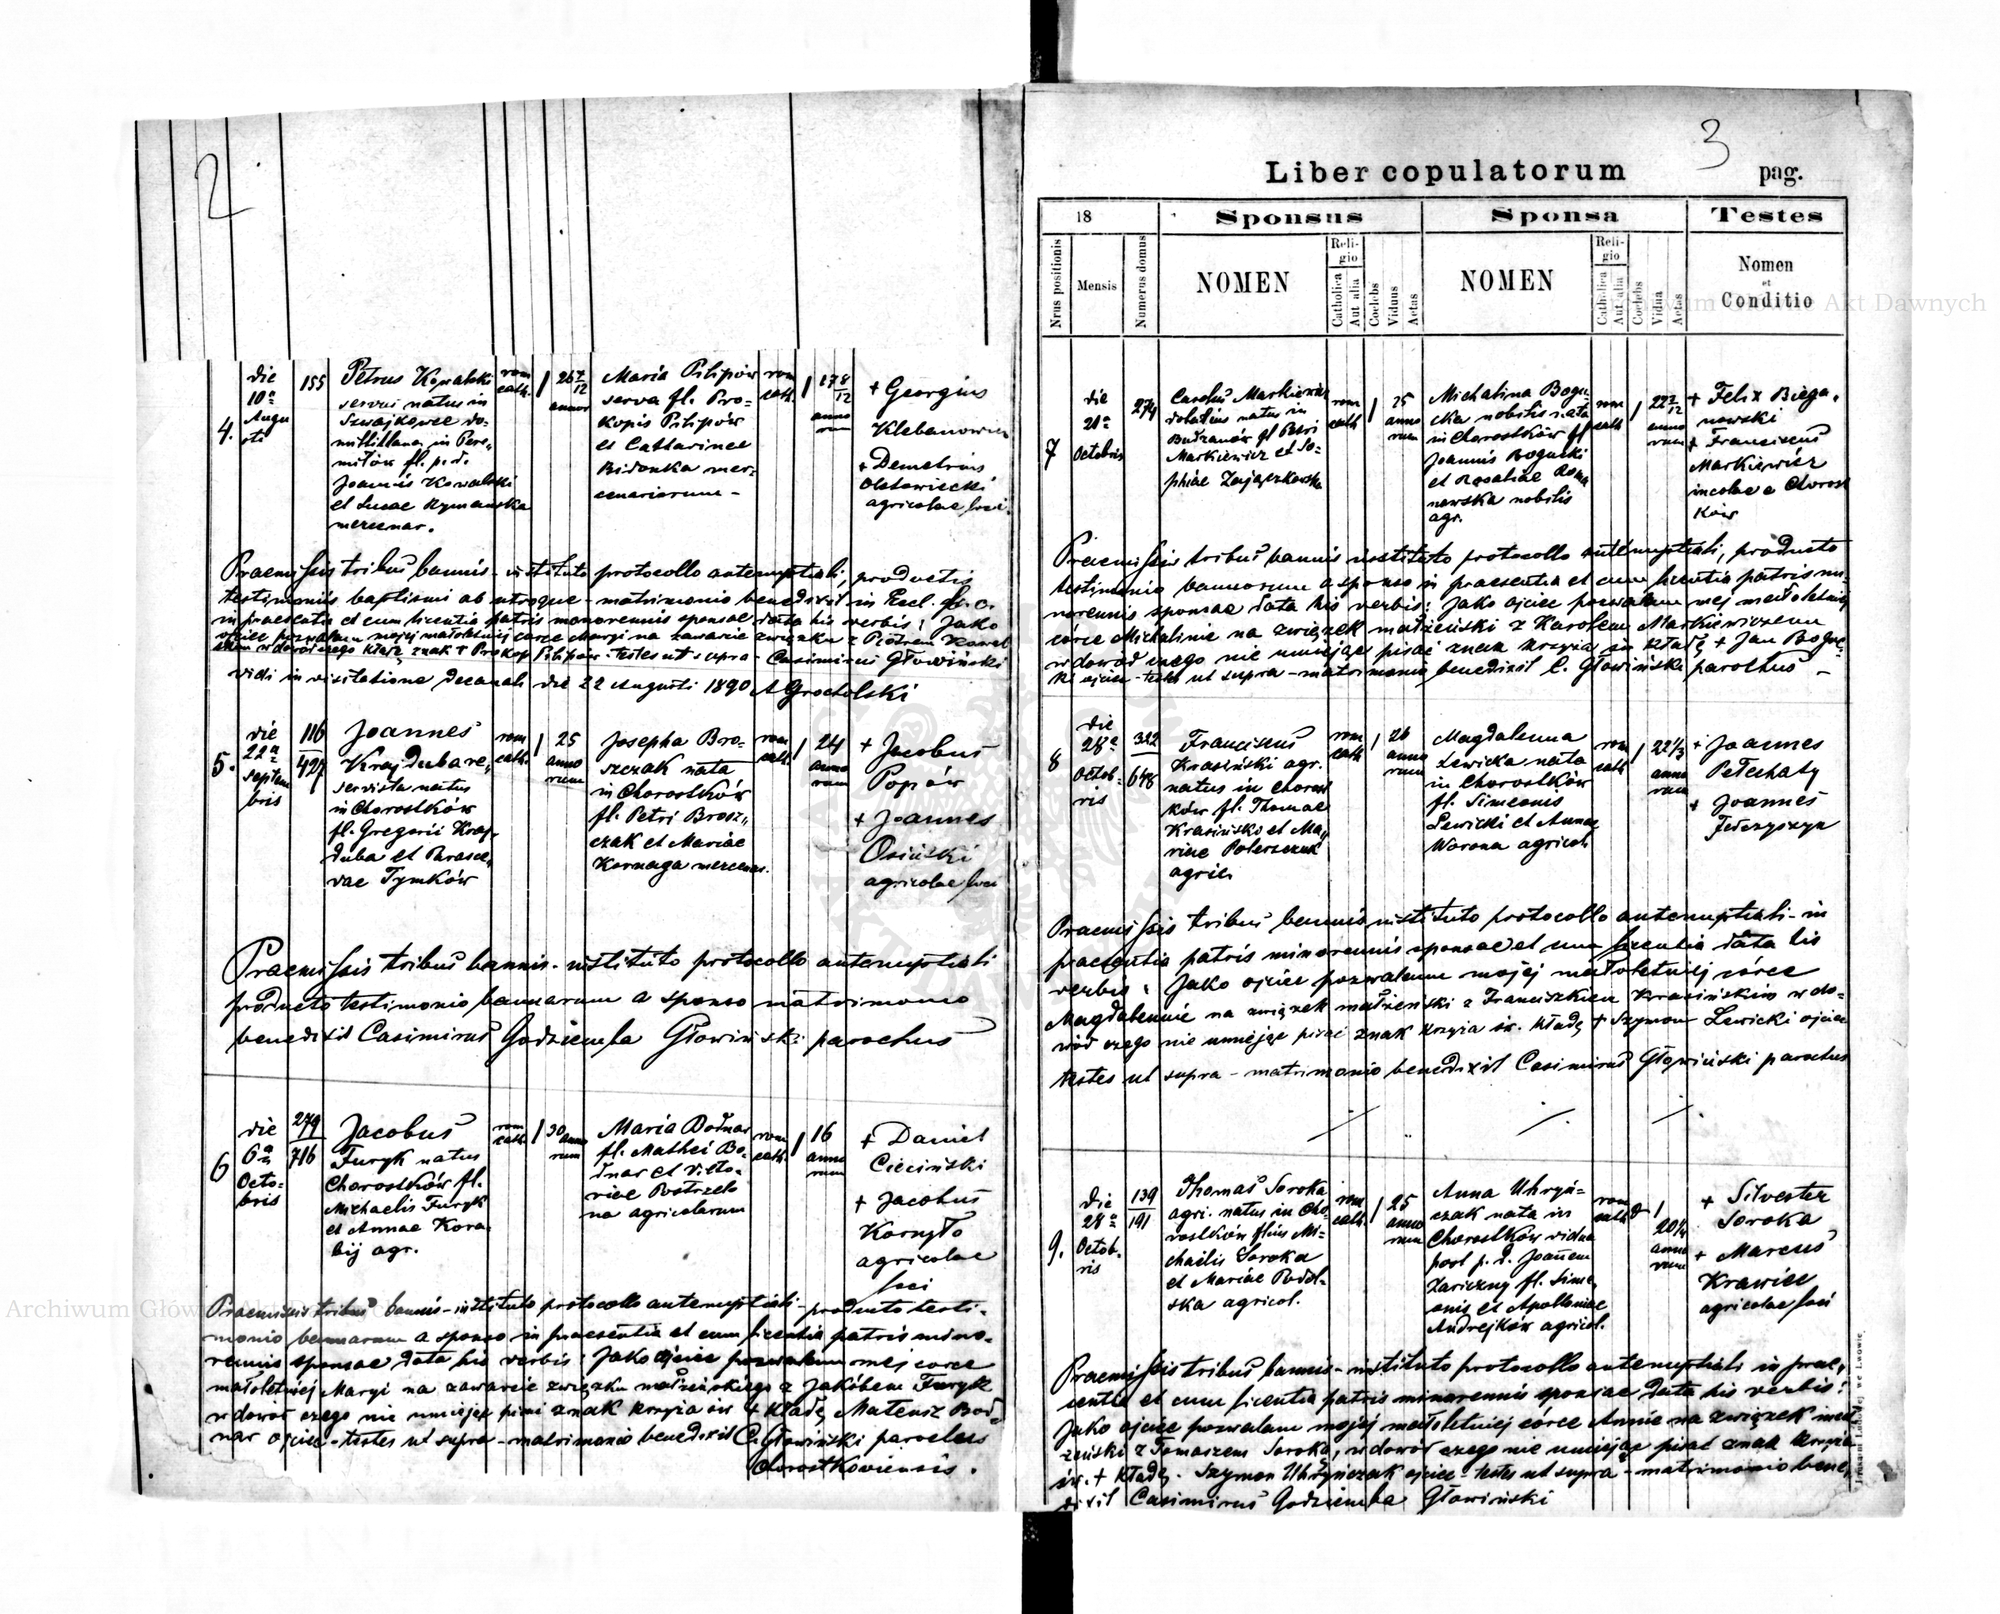 2
die
10a
Augu
sti
4.
155
Petrus Kowalski
servus natus in
Szwajkowce do-
miciliana in Pere-
miłów fl. p. d.
Joannis Kowalski
et Lucae Rymanska
mercenar.
rom
cath.
1
26 7/12
annor
Maria Pilipów
serva fl. Pro-
kopis Pilipów
et Catharinae
Bidonka mer-
cenariorum -
rom
cath.
1
17 8/12
anno
rum
+ Georgius
Klebanowicz
+ Demetrius
agricolae loci
Praemissis tribus bannis - instituto protocollo antenuptiali, productis
testimoniis baptismi ab utroque - matrimonio benedixit in Eccl.
in praesentia et cum licentia patris minorennis sponsae data his verbis: Jako
ojciec pozwalam mojej małoletniej córce Maryi na zawarcie związku z Piotrem Kowal
skim w dowód czego kładę znak + Prokop Pilipów - testes ut supra - Casimirus Głowiński
vidi in visitatione decanali die 22 Augusti 1890 A Grocholski
5.
die
22a
Septem
bris
116
427
Joannes
Krajduba re-
servista natus
in Chorostków
fl. Gregorii Kraj-
duba et Parasce-
vae Tymków
rom
cath.
1
25
anno
rum
Josepha Bro-
szczak nata
in Chorostków
fl. Petri Brosz-
czak et Mariae
Kornaga mercenar.
rom
cath.
1
24
anno
rum
+ Jacobus
Popów
+ Joannes
Osiński
agricolae loci
Praemissis tribus bannis - instituto protocollo antenuptiali
producto testimonio bannorum a sponso matrimonio
benedixit Casimirus Godziemba Głowiński parochus
6
die
6a
Octo-
bris
279
716
Jacobus
Furyk natus
Chorostków fl.
Michaelis Furyk
et Annae Kora-
bij agr.
rom
cath.
1
30 anno
rum
Maria Bodnar
fl. Mathei Bo-
dnar et Victo-
riae Postrzelo
na agricolarum
rom
cath.
1
16
anno
rum
+ Daniel
Cieciński
+ Jacobus
Kornyło
agricolae
loci
Praemissis tribus bannis - instituto protocollo antenuptiali - producto testi-
monio bannorum a sponso in praesentia et cum licentia patris mino-
rennis sponsae data his verbis: Jako ojciec pozwalam mej córce
małoletniej Maryi na zawarcie związku małżeńskiego z Jakóbem Furyk
w dowód czego nie umiejąc pisać znak krzyża św + kładę Mateusz Bod-
nar ojciec - testes ut supra - matrimonio benedixit C. Głowiński parochus
Chorostkoviensis.
3
Liber copulatorum pag.
18
Sponsus
Sponsa
Testes
Nrus positionis
Mensis
Numerus domus
NOMEN
Religio
Catholica
Aut alia
Coelebs
Viduus
Aetas
NOMEN
Religio
Catholica
Aut alia
Coelebs
Vidua
Aetas
Nomen
et
Conditio
7
die
21a
Octobris
274
Carolus Markiewicz
natus in
Budzanów fl Petri
Markiewicz et So-
phiae Zajączkowska
rom
cath
1
25
anno
rum
Michalina Bogu-
cka nobilis nata
in Chorostków fl
Joannis Bogucki
et Rosaliae Roma
nowska nobilis
agr.
rom
cath
1
22 2/12
anno
rum
+ Felix Biega-
nowski
+ Franciscus
Markiewicz
incolae e Chorost
ków
Praemissis tribus bannis instituto protocollo antenuptiali, producto
testimonio bannorum a sponso in praesentia et cum licentia patris mi-
norennis sponsae data his verbis: Jako ojciec pozwalam mej małoletniej
córce Michalinie na związek małżeński z Karolem Markiewiczem
w dowód czego nie umiejąc pisać znak krzyża św kładę + Jan Boguc-
ki ojciec - testes ut supra - matrimonio benedixit C. Głowiński parochus -
8
die
28a
Octob-
ris
322
648
Franciscus
Krasiński agr.
natus in Chorost
ków fl. Thomae
Krasiński et Ma-
riae Poleszczuk
agric.
rom
cath
1
26
anno
rum
Magdalenna
Lewicka nata
in Chorostków
fl. Simeonis
Lewicki et Annae
Worona agricol.
rom
cath
1
22 1/3
anno
rum
+ Joannes
Pełechaty
+ Joannes
Jedczyszyn
Praemissis tribus bannis instituto protocollo antenuptiali - in
praesentia patris minorennis sponsae et cum licentia data his
verbis: Jako ojciec pozwalam mojej małoletniej córce
Magdalennie na związek małżeński z Franciszkiem Krasińskim w do-
wód czego nie umiejąc pisać znak krzyża św. kładę + Szymon Lewicki ojciec
testes ut supra - matrimonio benedixit Casimirus Głowiński parochus
9.
die
28a
Octob-
ris
139
191
Thomas Soroka
agri. natus in Cho-
rostków filius Mi-
chaelis Soroka
et Mariae Podol-
ska agricol.
rom
cath.
1
25
anno
rum
Anna Uhryń-
czak nata in
Chorostków vidua
post p. d. Joannem
Zariczny fl. Sime-
onis et Apolloniae
Andrejków agricol.
rom
cath
1
20 1/4
anno
rum
+ Silvester
Soroka
+ Marcus
Krawiec
agricolae loci
Praemissis tribus bannis - instituto protocollo antenuptiali in prae-
sentia et cum licentia patris minorennis sponsae data his verbis:
Jako ojciec pozwalam mojej małoletniej córce Annie na związek mał
żeński z Tomaszem Soroką, w dowód czego nie umiejąc pisać znak krzyża
św. + kładę. Szymon Uhryńczak ojciec - testes ut supra - matrimonio bene-
dixit Casimirus Godziemba Głowiński
Archiwum Główne Akt Dawnych
Archiwum Główne Akt Dawnych